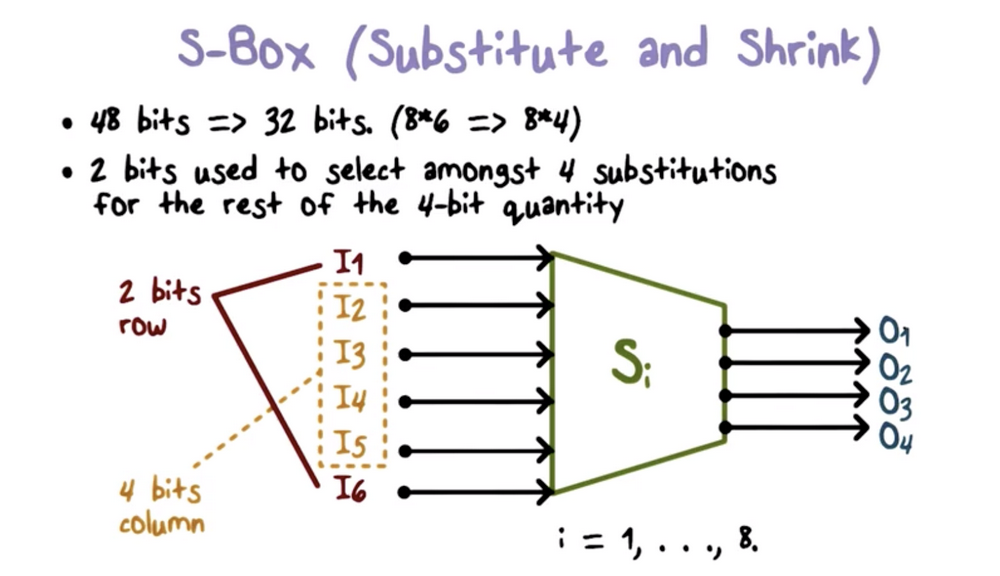 S-Box (Substitute and Shrink)
• 48 bits => 32 bits. (8*6 => 8*4)
• 2 bits used to select amongst 4 substitutions
for the rest of the 4-bit quantity
2 bits
row
I1
I2
I3
I4
I5
I6
4 bits
column
Si
O1
O2
O3
O4
i = 1, . . ., 8.